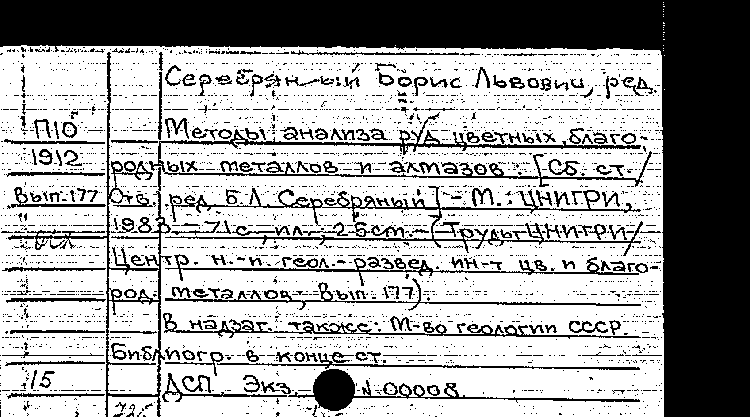 Серебряный Борис Львович, ред.
П10 Методы анализа руд цветных, благо-
1912 родных металлов и алмазов : [Сб. ст. /
Вып. 177 Отв. ред. Б.Л. Серебряный] - М. : ЦНИГРИ,
1983. - 71 с., ил., 25 cm. - (Труды ЦНИГРИ /
Центр. н.-и. геол.-развед. ин-т цв. и благо-
род. металлов; Вып. 177).
В надзаг. также: М-во геологии СССР.
Библиогр. в конце ст.
15 ДСП Экз. N 00008.